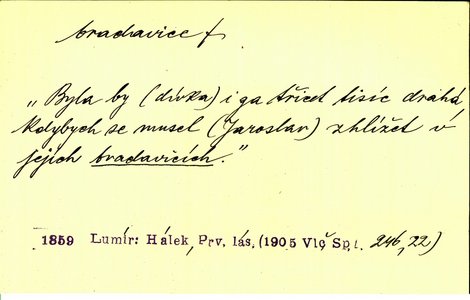 bradavice f
„Byla by (dívka) i za třicet tisíc drahá,
kdybych se musel (Jaroslav) zhlížet v
jejich bradavicích."
1859 Lumír: Hálek, Prv. lás. (1905 Vlč Sp1. 246, 22)